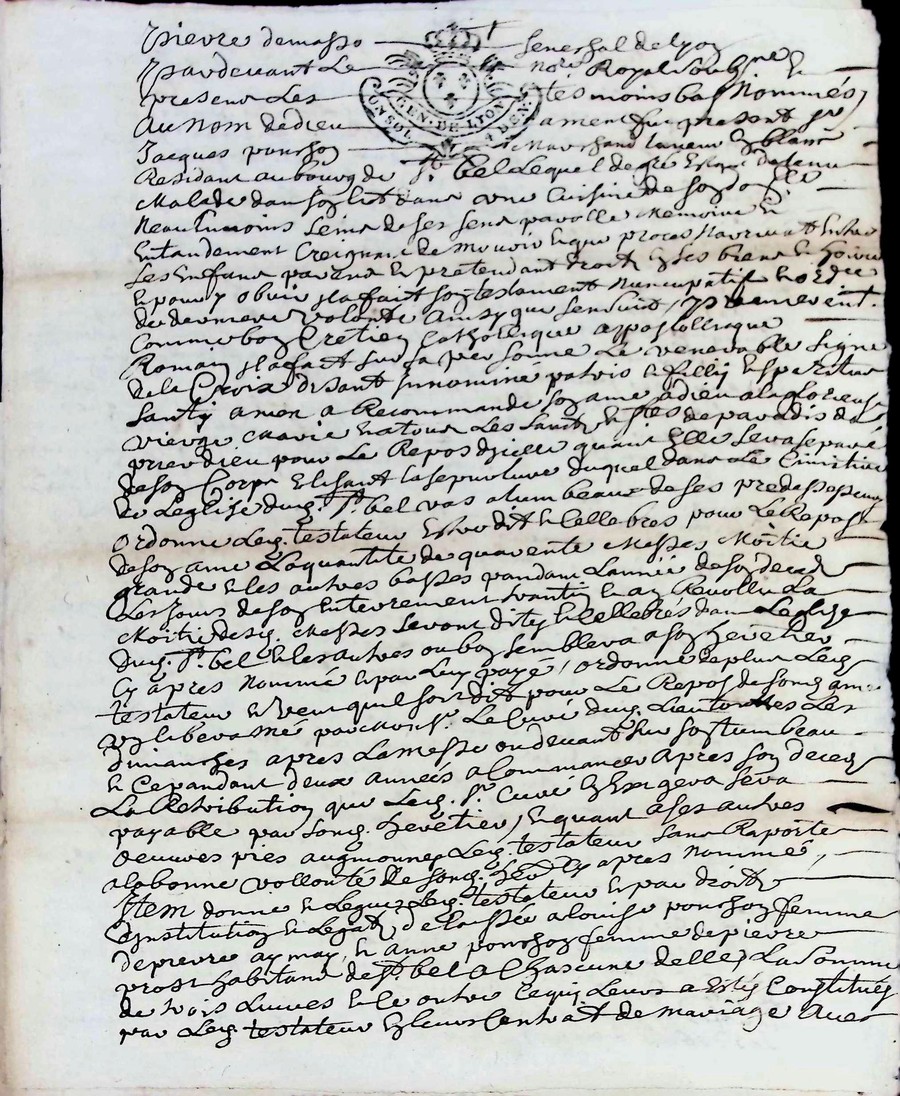 pierre demasso senechal de lyon
pardevant Le not.re Royal soubsne &
presens Les tesmoins bas Nommés
GEN. DE LYON
CONSOL 4 DEN.
Au Nom de dieu amen fut present sr
Jacques ponchon Marchand taneur en blanc
Residant au bourg de st. bel Lequel de gré detenu
Malade dans son lict dans une Cuisine de son
Neantmoins sein de ses sens parolle Memoire &
Entandement Creignant de Mourir & que proces Narrivat Entre
Les Enfans parens & pretendant droitz En ses biens &
& pour y obvier Il a fait son testament Nuncupatif & ordre
de derniere Volonté Ainsy que sensuit / premierement
Comme bon Cretien Catholique apostollique
Romain Il a fait sur sa personne Le venerable signe
de la Croix disant Innomine patris & filly & speritus
santy amen a Recommandé son ame a dieu a la glorieuse
vierge Marie & a tous Les saints & stes de paradis de
prier dieu pour Le Repos dicelle quand Elle sera separée
de son Corps Elisant la sepulture duquel dans Le Cimitiere
de Leglise dud. st. bel vas a tumbeau de ses predecesseurs
ordonne Led. testateur Estre dit & Cellebres pour Le Repos
de son ame La quantité de quarente Messes Moitié
grande & les autres basses pandant Lannée de son deceds
Les Jours de son Enterrement & an Revollu La
Moitié desd. Messes seront dites & Cellebrés dans Leglise
dud. st. bel & les autres ou bon semblera a son heretier
Cy apres Nommé & par Luy payé / ordonne de plus Led.
testateur & veut quil soit dit pour Le Repos de sond. ame
un libera me par Mons. sr. Le Curé dud. Lieu tous Les
dimanches apres La messe au devant sur son tumbeau
& Cepandant deux années a Commancer Apres son deceds
La Retribution que Led. sr. Curé En Exigera sera
payable par sond. heretier, & quant a ses autres
oeuvres pies aumones Led. testateur sans Raporte
a la bonne vollonté de sond. her. Cy apres Nommé,
Item donne & Legue Led. testateur & par droit
dinstitution & Legat delaisse a louise ponchon femme
de pierre aymay, & anne ponchon femme de pierre
prost habitans de st. bel a Chascune delles La somme
de trois Livres & ce outre Ce qui Leurs a Esté Constitués
par Led. testateur En leurs Contrat de mariage Avec